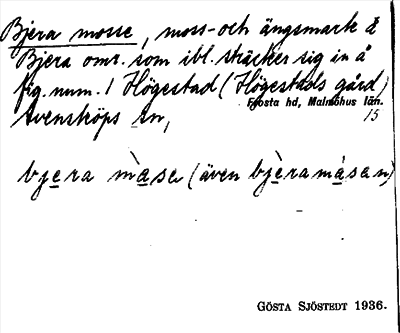 Bjera mosse, moss- och ängsmark å
Bjera omr. som ibl. sträcker sig in å
fig. num. 1 Högestad (Högestads gård)
Frosta hd, Malmöhus län.
15
Svensköps sn,
bjera mase (även bjeramåsan)
GÖSTA SJÖSTEDT 1936.